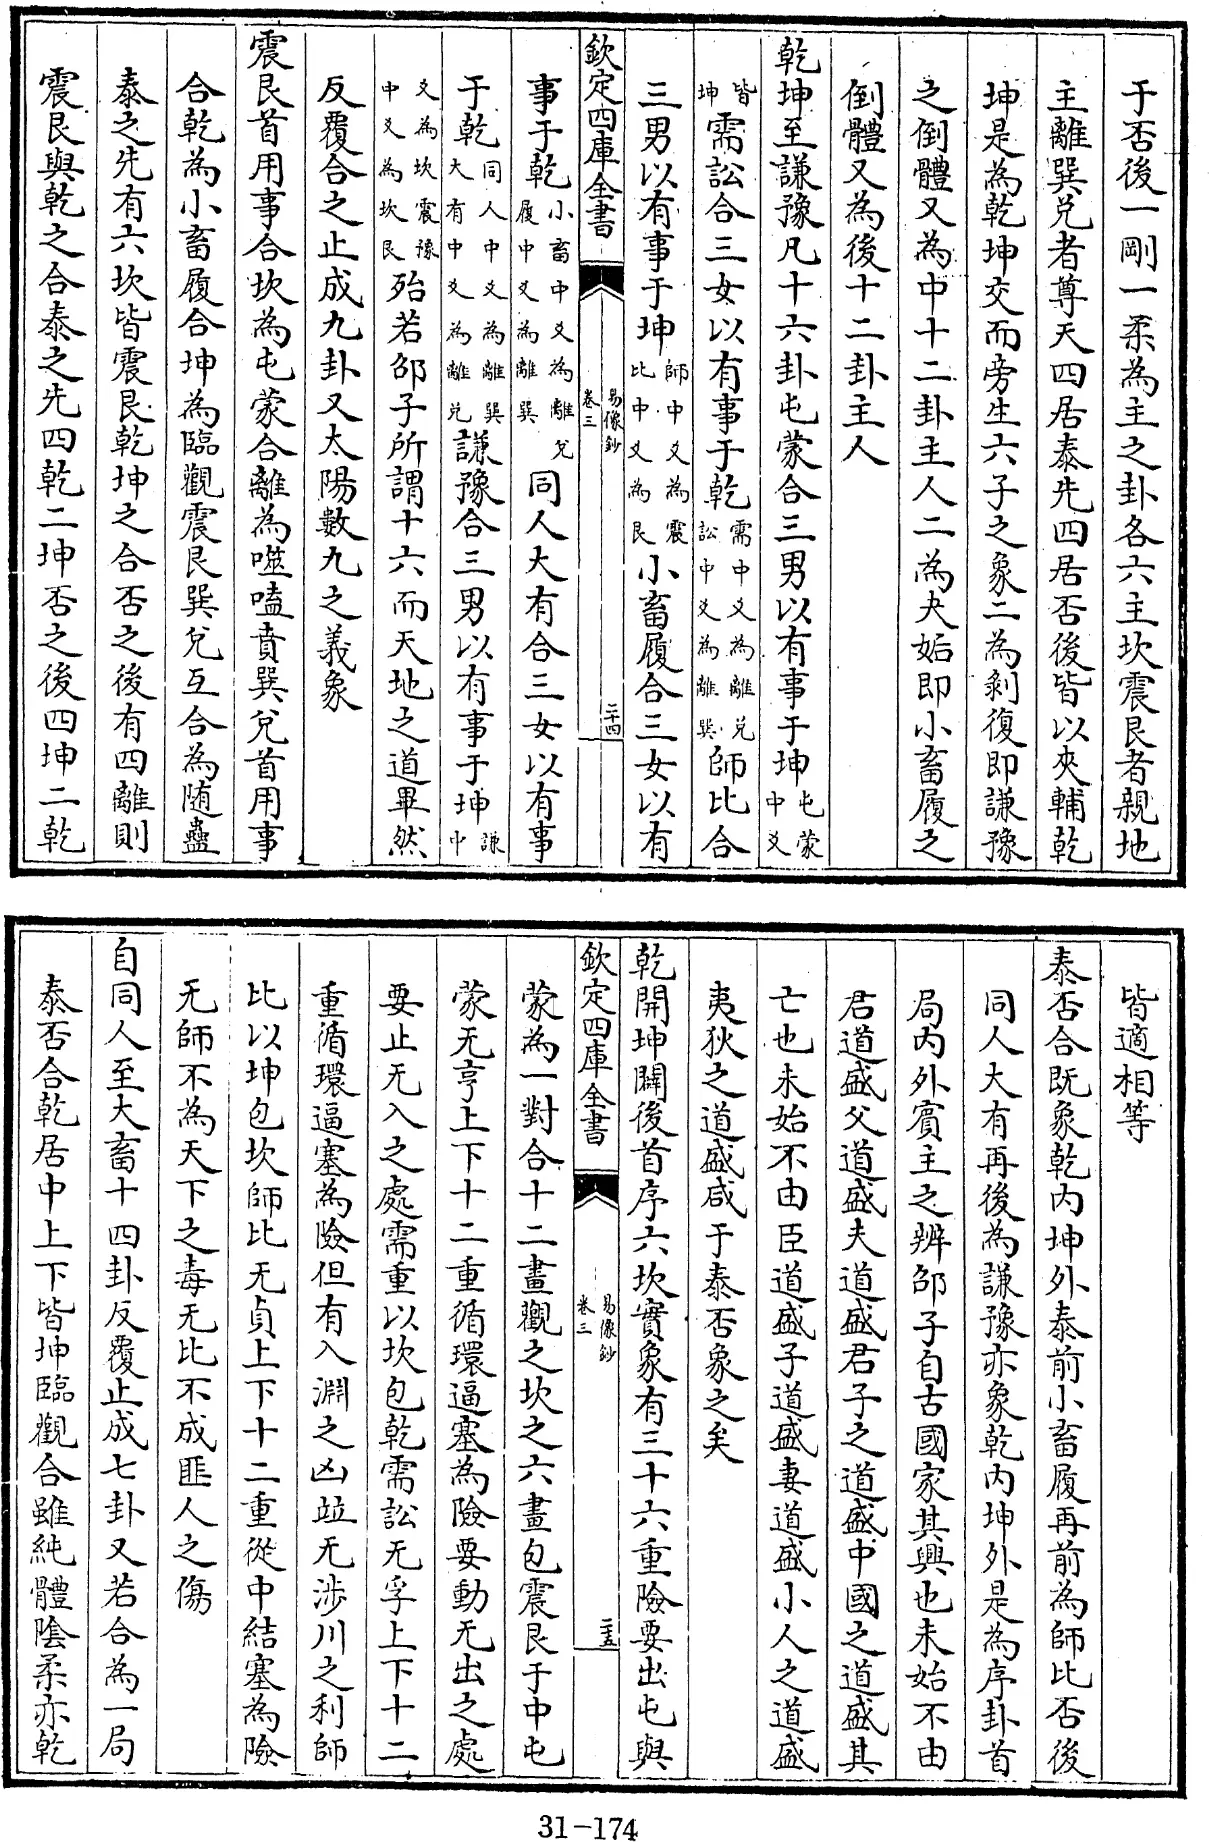 于否後一剛一柔為主之卦各六主坎震艮者親地
主離巽兌者尊天四居泰先四居否後皆以夾輔乾
坤是為乾坤交而旁生六子之象二為剝復即謙豫
之倒體又為中十二卦主人二為夬姤即小畜履之
倒體又為後十二卦主人
乾坤至謙豫凡十六卦屯蒙合三男以有事于坤屯蒙中爻
皆坤需訟合三女以有事于乾需中爻為離兌訟中爻為離巽師比合
三男以有事于坤師中爻為震比中爻為艮小畜履合三女以有
欽定四庫全書
易像鈔
卷三
二十四
事于乾小畜中爻為離兌履中爻為離巽同人大有合三女以有事
于乾同人中爻為離巽大有中爻為離兌謙豫合三男以有事于坤謙中
爻為坎震豫中爻為坎艮殆若邵子所謂十六而天地之道畢然
反覆合之止成九卦又太陽數九之義象
震艮首用事合坎為屯蒙合離為噬嗑賁巽兌首用事
合乾為小畜履合坤為臨觀震艮巽兌互合為随蠱
泰之先有六坎皆震艮乾坤之合否之後有四離則
震艮與乾之合泰之先四乾二坤否之後四坤二乾
皆適相等
泰否合既象乾内坤外泰前小畜履再前為師比否後
同人大有再後為謙豫亦象乾内坤外是為序卦首
局内外賓主之辨邵子自古國家其興也未始不由
君道盛父道盛夫道盛君子之道盛中國之道盛其
亡也未始不由臣道盛子道盛妻道盛小人之道盛
夷狄之道盛咸于泰否象之矣
乾開坤闢後首序六坎實象有三十六重險要出屯與
欽定四庫全書
易像鈔
卷三
二十五
蒙為一對合十二畫觀之坎之六畫包震艮于中屯
蒙无亨上下十二重循環逼塞為險要動无出之處
要止无入之處需重以坎包乾需訟无孚上下十二
重循環逼塞為險但有入淵之凶竝无涉川之利師
比以坤包坎師比无貞上下十二重從中結塞為險
无師不為天下之毒无比不成匪人之傷
自同人至大畜十四卦反覆止成七卦又若合為一局
泰否合乾居中上下皆坤臨觀合雖純體陰柔亦乾
31-174